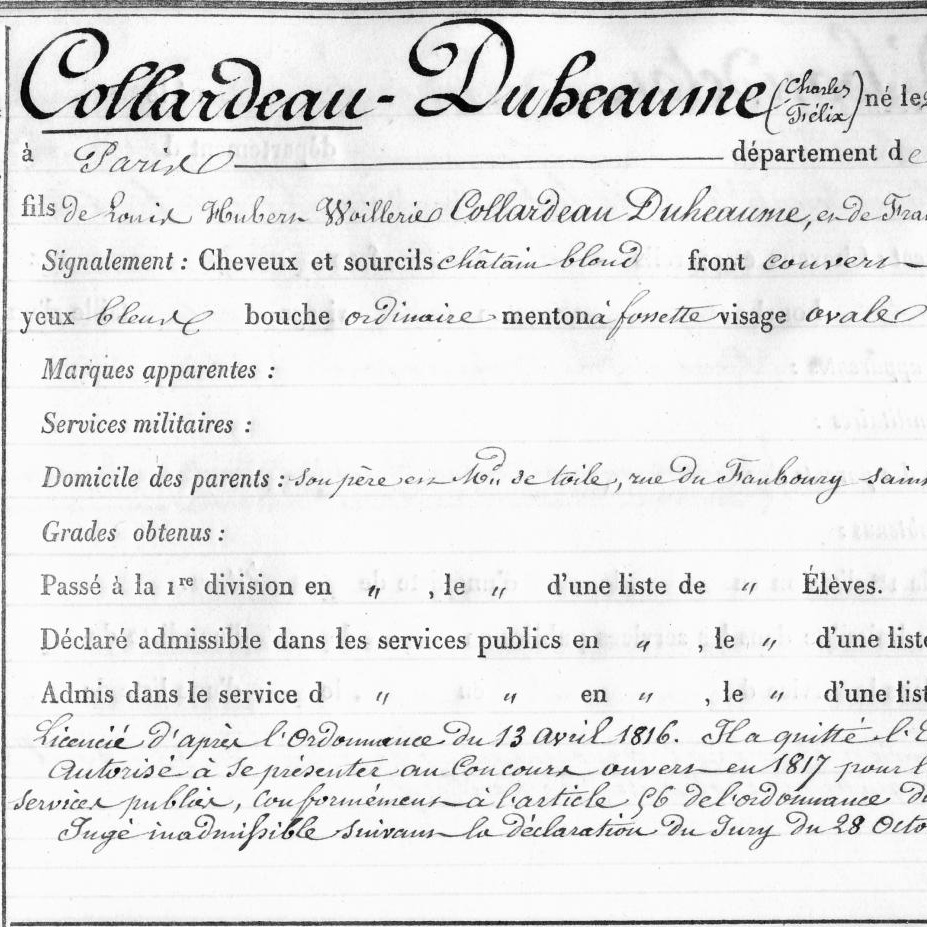 Collardeau-Duheaume (Charles Félix) né le
à Paris département de
fils de Louis Hubert Woilleries Collardeau Duheaume, et de
Signalement : Cheveux et sourcils châtain blond front couvert
yeux bleus bouche ordinaire menton à fossette visage ovale
Marques apparentes :
Services militaires :
Domicile des parents : son père est Md de toile, rue du Faubourg
Grades obtenus :
Passé à la 1re division en " , le " d'une liste de " Élèves.
Déclaré admissible dans les services publics en " , le " d'une
Admis dans le service d " " en " , le " d'une
Licencié d'après l'Ordonnance du 13 avril 1816. Il a quitté
Autorisé à se présenter au Concours ouvert en 1817 pour
services publics, conformément à l'article 56 de l'ordonnance
Jugé inadmissible suivant la déclaration du Jury du 28